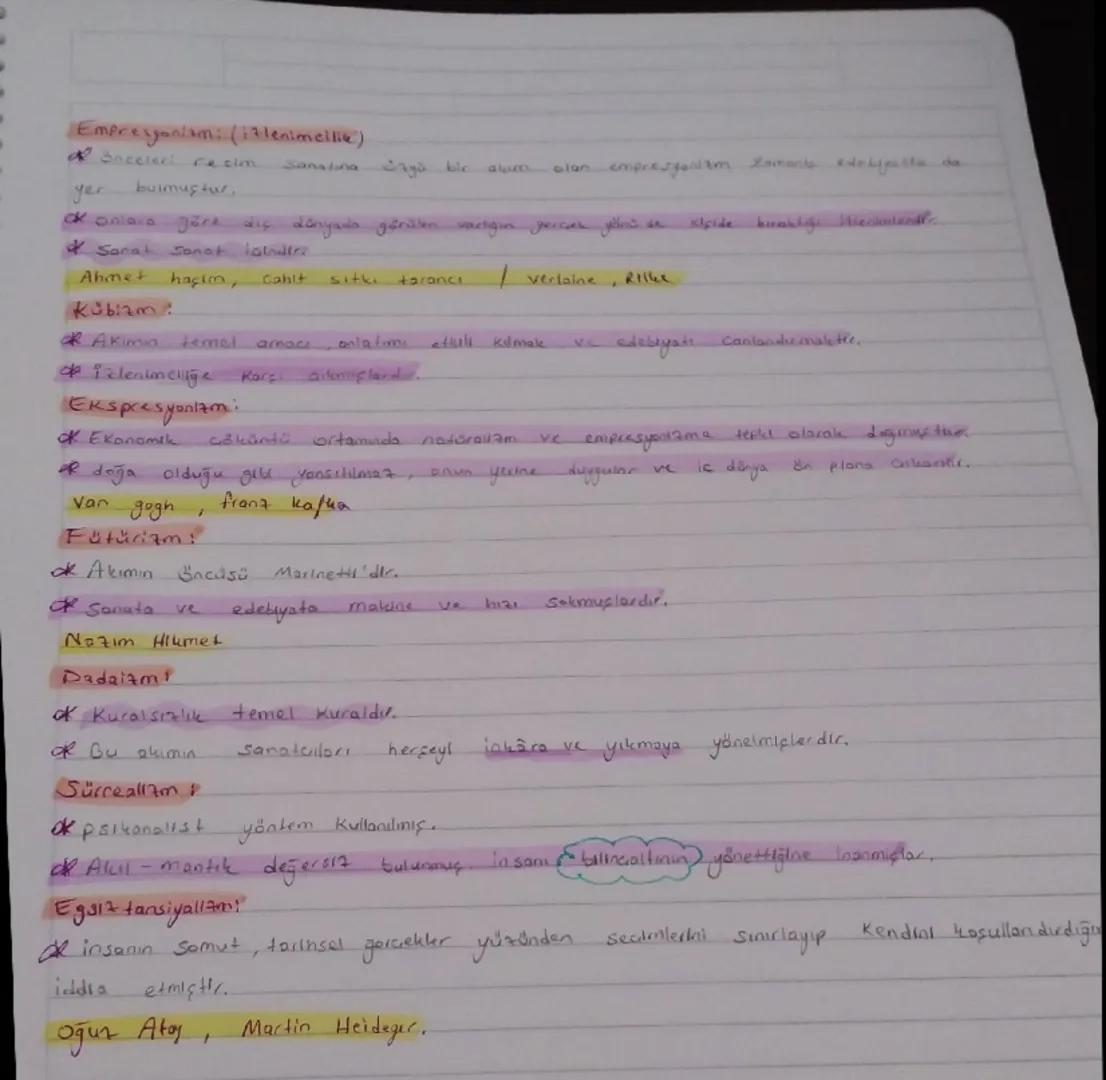 Empresyonizm: (izlenimcilik)
* Önceleri resim sanatına özgü bir akım olan empresyonizm zamanla edebiyatta da
yer bulmuştur.
* onlara göre dış dünyada görülen varlığın gerçek yönü de kişide bıraktığı izlenimlerdir.
* Sanat sanat içindir.
Ahmet haşim, Cahit sıtkı tarancı / verlaine, Rilke
Kübizm:
* Akımın temel amacı, anlatımı etkili kılmak ve edebiyatı canlandırmaktır.
* izlenimciliğe karşı çıkmışlardır.
Ekspresyonizm:
* Ekonomik çöküntü ortamında natüralizm ve empresyonizme tepki olarak doğmuştur.
* doğa olduğu gibi yansıtılmaz, onun yerine duygular ve iç dünya ön plana çıkarılır.
Van gogh, franz kafka
Fütürizm:
* Akımın öncüsü Marinetti'dir.
* Sanata ve edebiyata makine ve hızı sokmuşlardır.
Nazım Hikmet
Dadaizm:
* Kuralsızlık temel kuraldır.
* Bu akımın sanatçıları herşeyi inkâra ve yıkmaya yönelmişlerdir.
Sürrealizm:
* psikanalist yöntem kullanılmış.
* Akıl-mantık değersiz bulunmuş insanı bilinçaltının yönettiğine inanmışlar.
Egzistansiyalizm:
* insanın somut, tarihsel gerçekler yüzünden seçimlerini sınırlayıp kendini koşullandırdığı
iddia etmiştir.
Oğuz Atay, Martin Heideger.